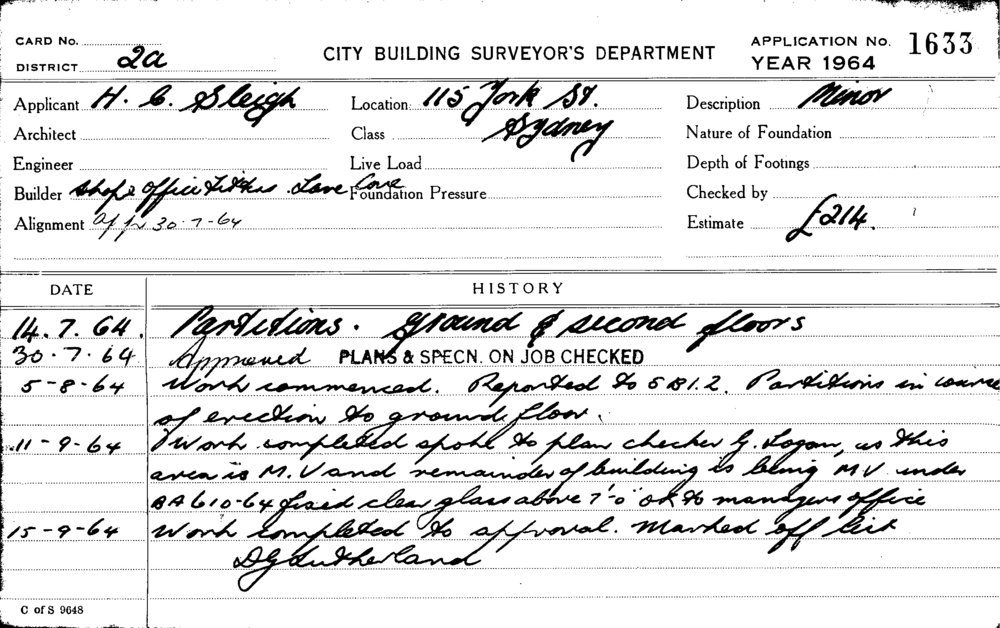 CARD No.
DISTRICT 2a
CITY BUILDING SURVEYOR'S DEPARTMENT
APPLICATION No. 1633
YEAR 1964
Applicant H. C. Sleigh
Location 115 York St.
Sydney
Description Minor
Architect
Class
Nature of Foundation
Engineer
Live Load
Depth of Footings
Builder Shop & Office Cove
Foundation Pressure
Checked by
Alignment app 30-7-64
Estimate £214.
DATE HISTORY
14.7.64. Partitions. Ground & second floors
30.7.64 Approved PLANS & SPECN. ON JOB CHECKED
5-8-64 Work commenced. Reported to SB1.2. Partitions in course
of erection to ground floor.
11-9-64 Work completed spoke to plan checker G. Logan, as this
area is M.V and remainder of building is being MV under
BA610-64 fixed clear glass above 7'-0" ok to managers office
15-9-64 Work completed to approval. Marked off list
DG Sutherland
C of S 9648